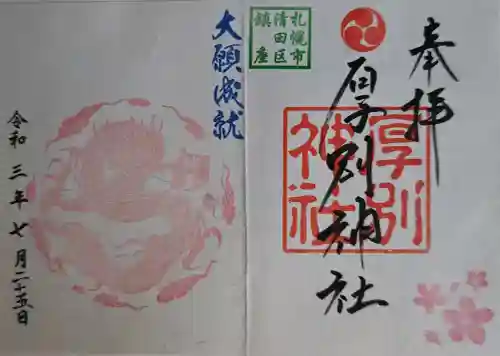 奉拝
厚別神社
厚別
神社
札幌市
清田区
鎮座
大願成就
令和三年七月二十五日